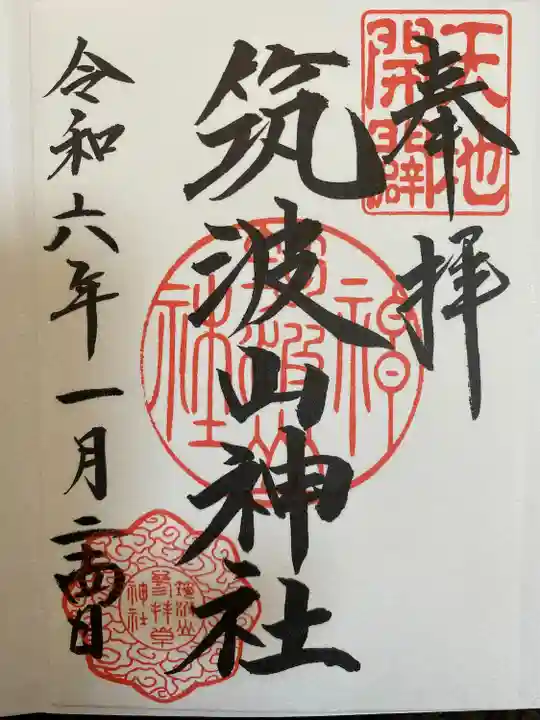 天地
開闢
奉拝
筑波山神社
令和六年一月二十四日
筑波山
参拝章
神社